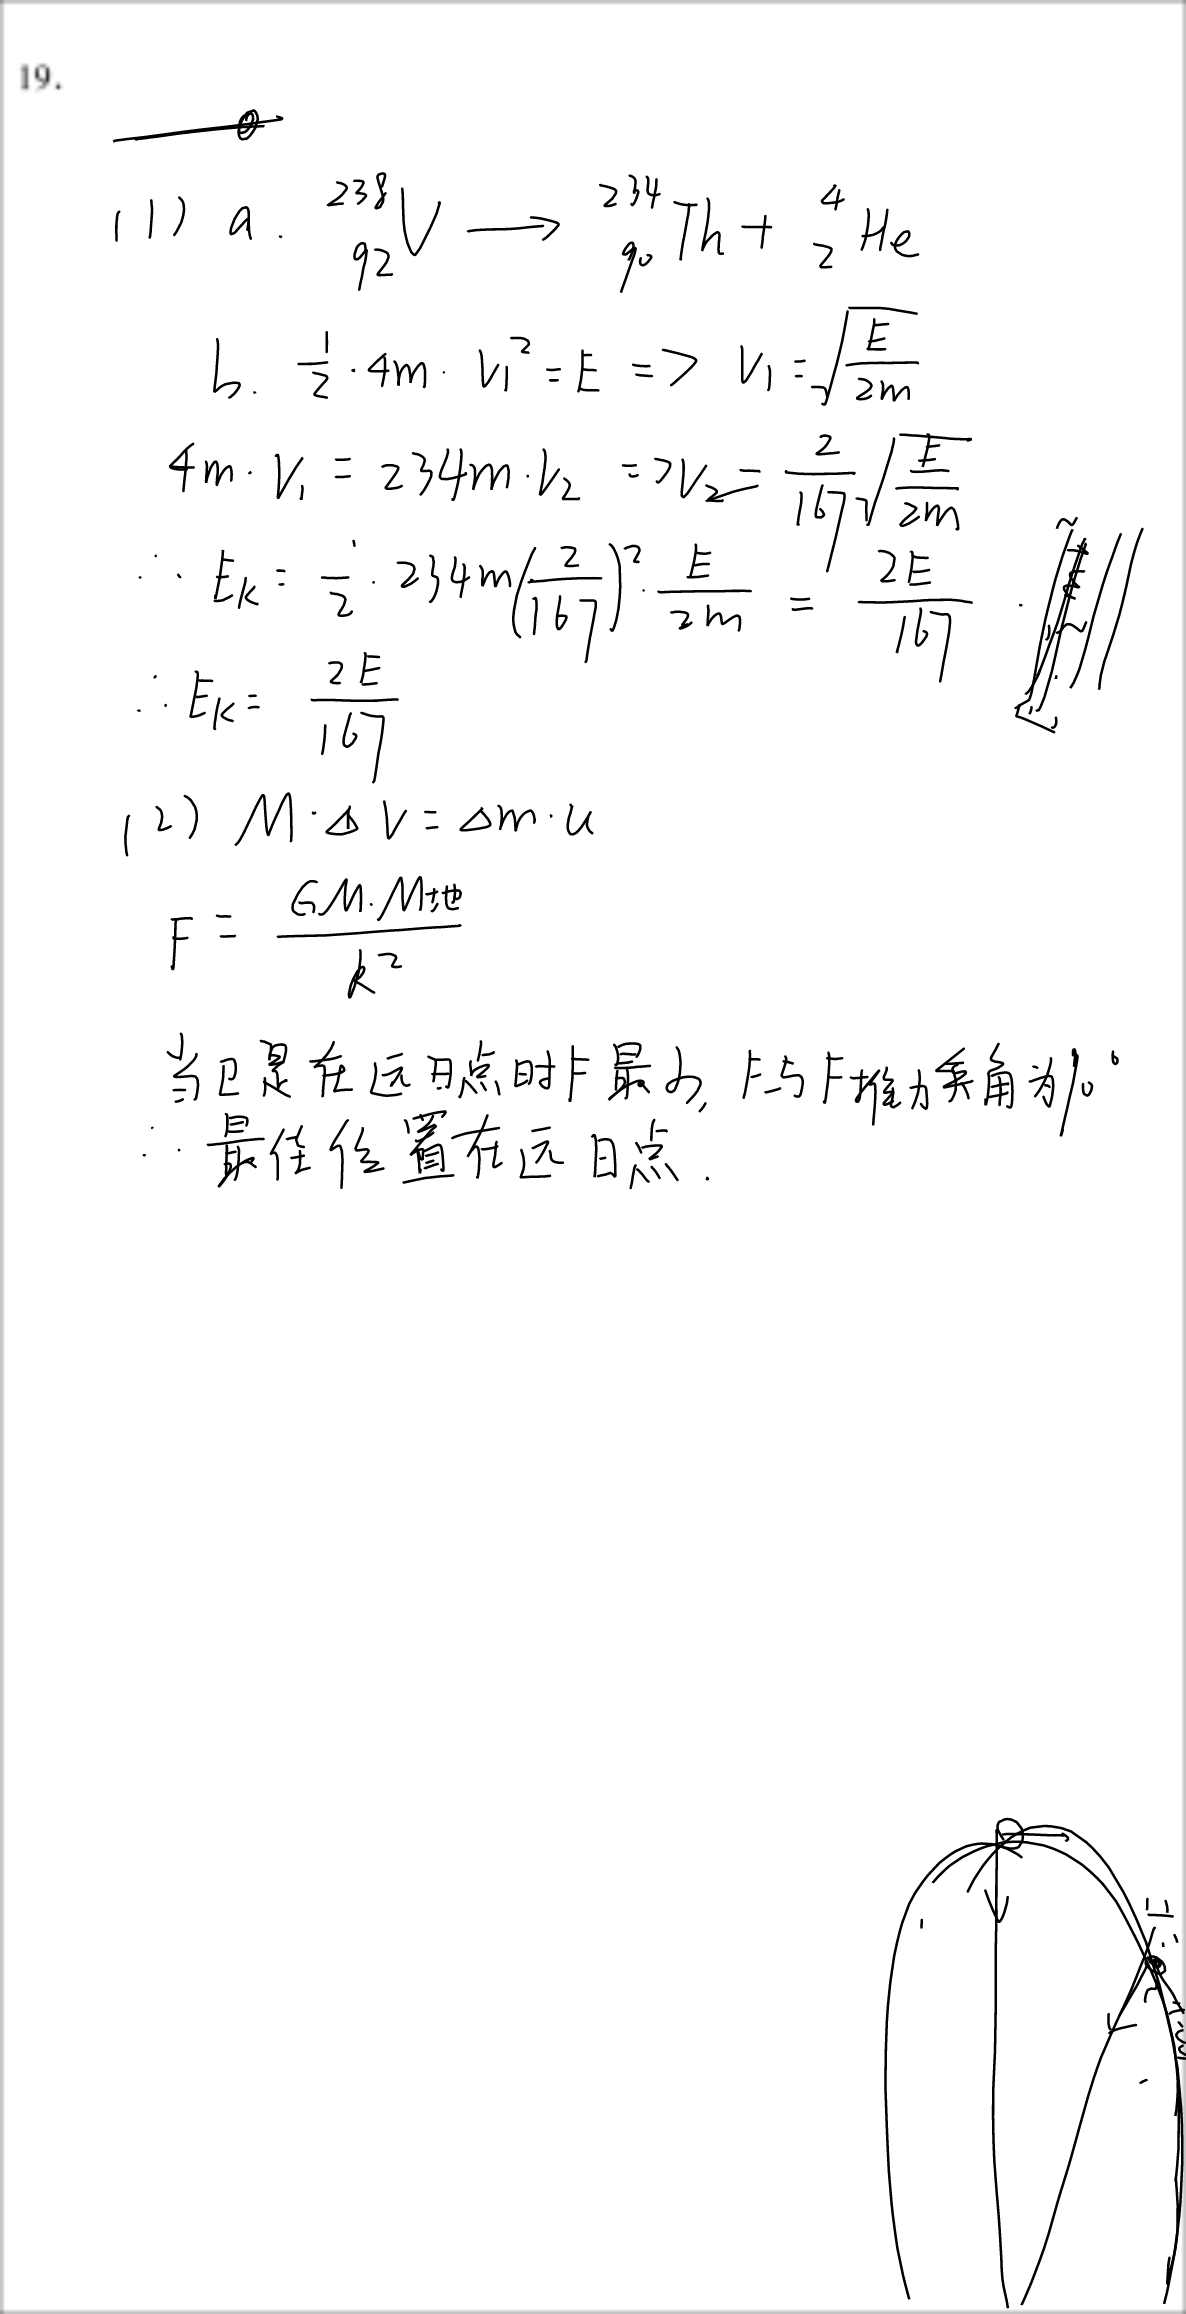 19.
(1) a. ²³⁸₉₂V → ²³⁴₉₀Th + ⁴₂He
b. 1/2 · 4m · V₁² = E => V₁ = √(E/2m)
4m · V₁ = 234m · V₂ => V₂ = 2/167 √(E/2m)
∴ Eₖ = 1/2 · 234m (2/167)² · E/2m = 2E/167
∴ Eₖ = 2E/167
(2) M · △V = △m · u
F = GM·M地/R²
当卫是在远日点时F最小, F与F推力夹角为90°
∴ 最佳位置在远日点.